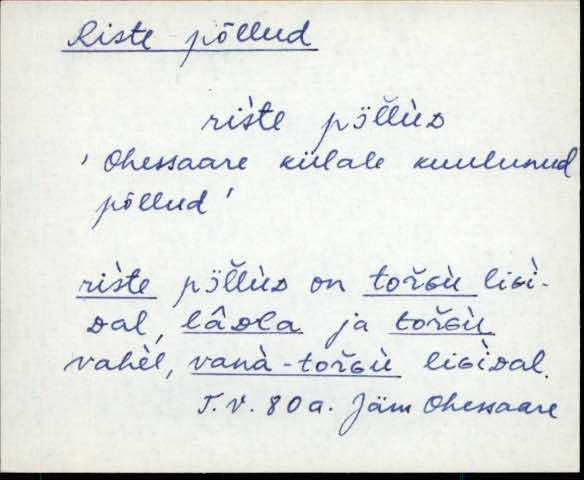 Riste põllud
rìšte pɔ̈l̆lùᴅ
' Ohessaare külale kuulunud
põllud '
rìšte pɔ̈l̆lùᴅ on tor̆ɢù liɢì-
ᴅal, lâᴅla ja tor̆ɢù
vahèl, vanà-tor̆ɢù liɢìᴅal.
T.V. 80a. Jäm Ohessaare